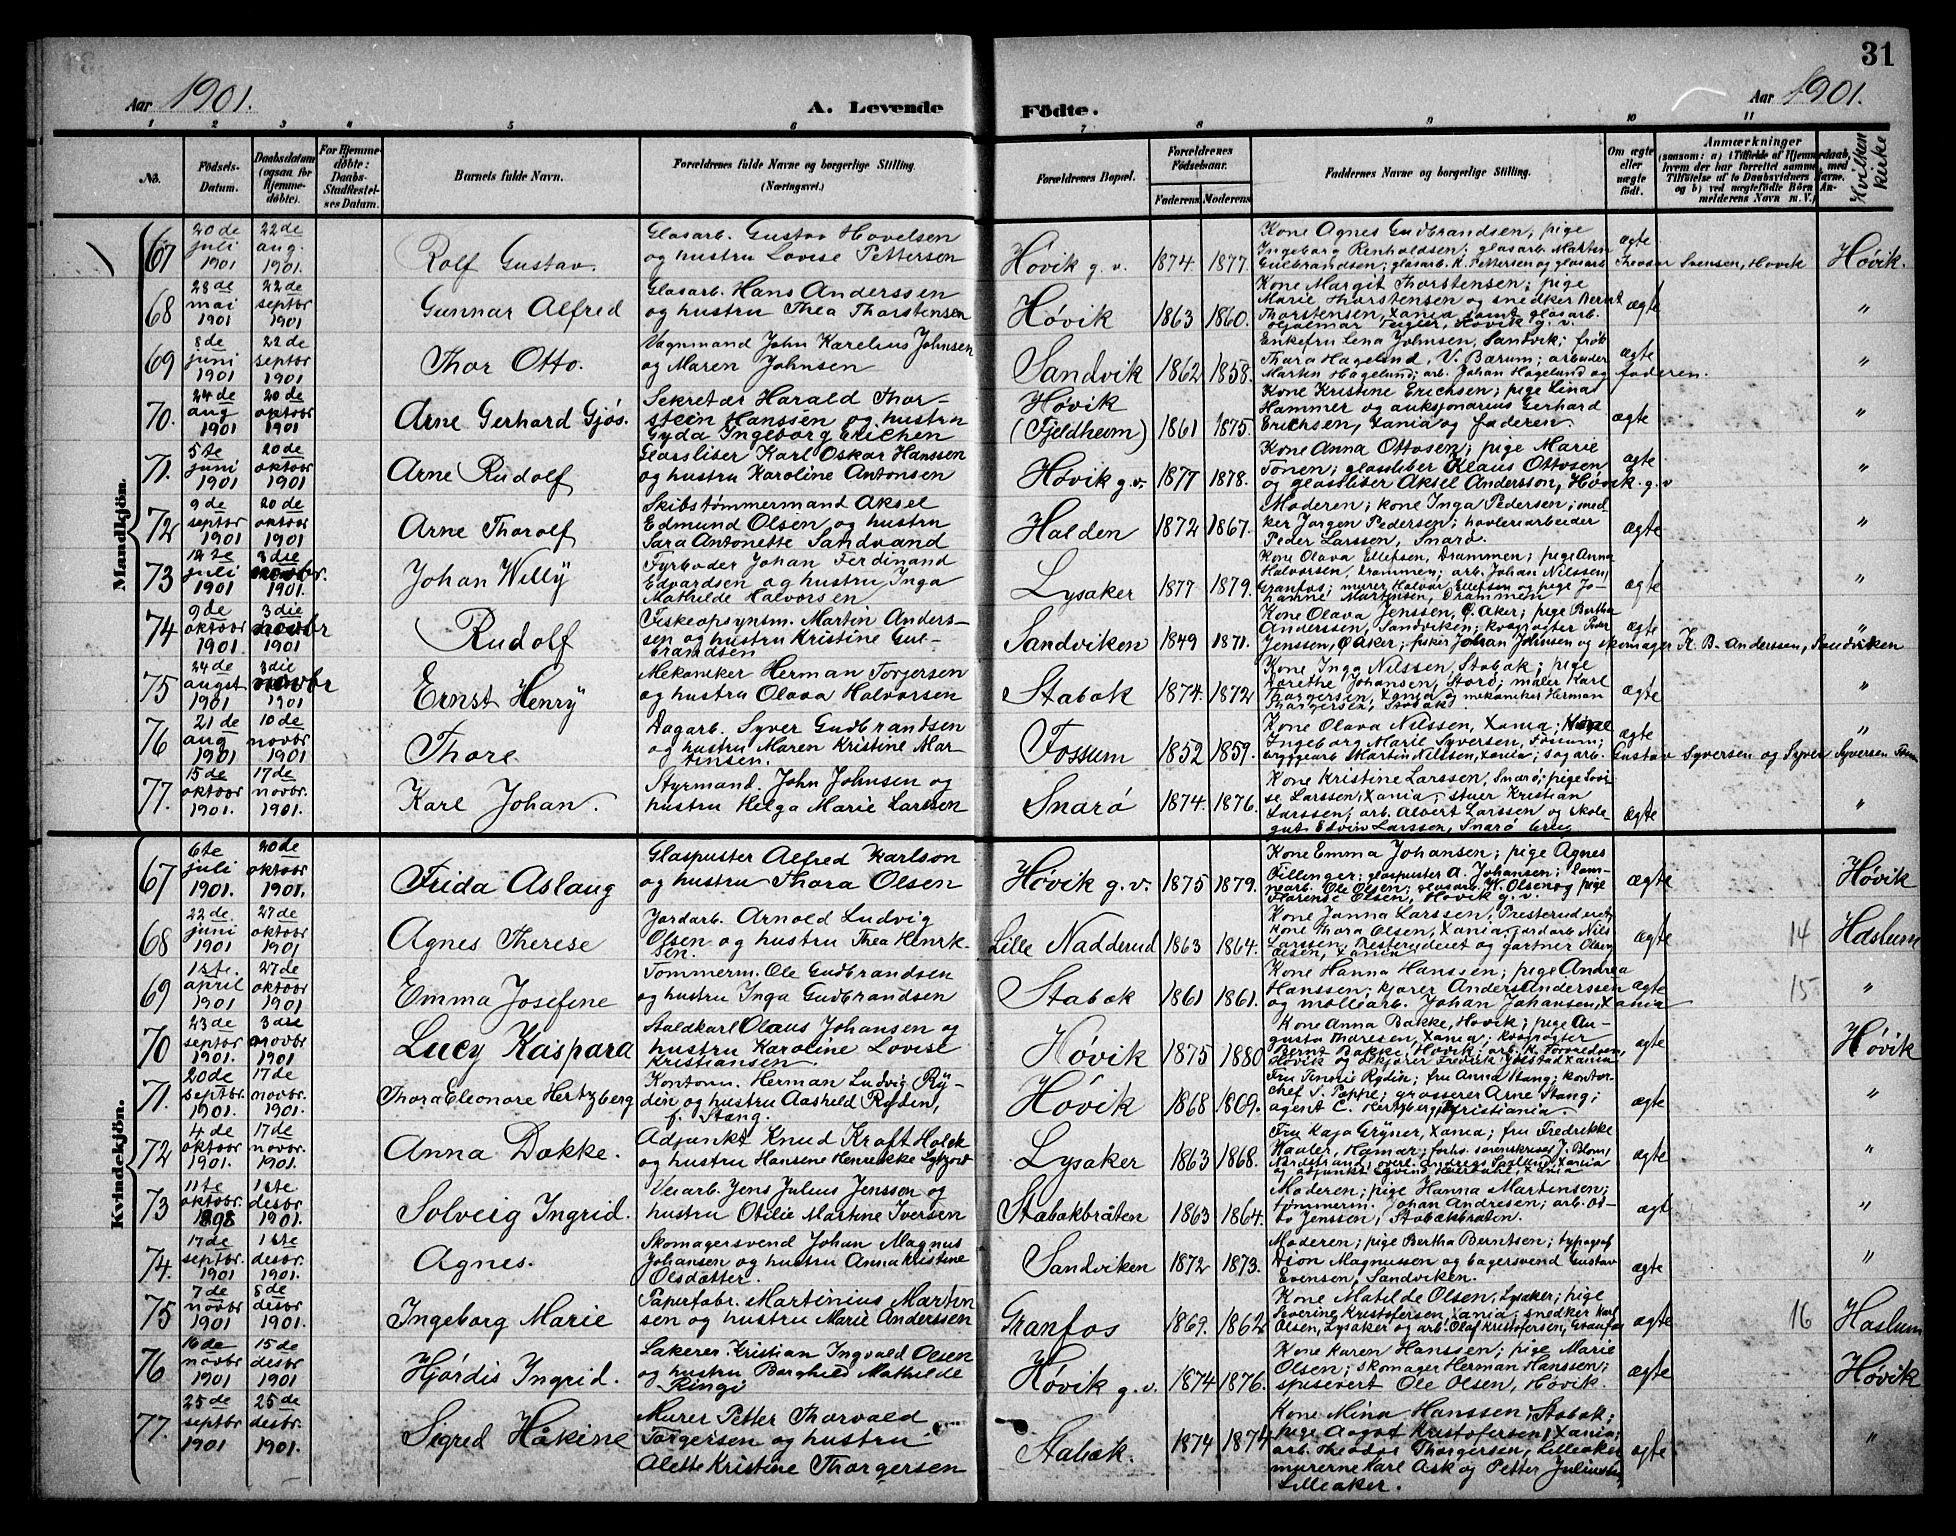 31
Aar 1901.
A. Levende Födte.
Aar 1901.
1 2 3 4 5 6 7 8 9 10 11
No.
Födsels-Datum.
Daabsdatum (ogsaa for Hjemmedöbte).
For Hjemmedöbte: Daabs-Stadfæstelses Datum.
Barnets fulde Navn.
Forældrenes fulde Navne og borgerlige Stilling. (Næringsvei.)
Forældrenes Bopæl.
Forældrenes Födselsaar.
Faderens Moderens
Faddernes Navne og borgerlige Stilling.
Om ægte eller uægte födt.
Anmærkninger
(saasom: a) i Tilfælde af Hjemmedaab, hvem der har forrettet samme, med Tilföielse af to Daabsvidners Navne, og b) ved uægtefödte Börn Anmelderens Navn m. V.)
Hvilken kirke
Mandkjön.
67 20de juli 1901 22de aug. 1901. Rolf Gustav. Glasarb. Gustav Hovelsen og hustru Lovise Pettersen Høvik g. v. 1874 1877. Kone Agnes Gudbrandsen; pige Ingeborg Renholdsen; glasarb. Martin Gulbrandsen; glasarb. K. Pettersen og glasarb Theodor Svensen, Hovik ægte Høvik.
68 28de mai 1901 22de septbr 1901 Gunnar Alfred Glasarb. Hans Anderssen og hustru Thea Thorstensen Høvik 1863 1860. Kone Margit Thorstensen; pige Marie Thorstensen og snedker Bernt Thorstensen, Xania samt glasarb. Hjalmar Høvik g. v. ægte "
69 8de juni 1901 22de septbr 1901 Thor Otto. Vognmand John Karelius Johnsen og Maren Johnsen Sandvik 1862 1858. Enkefru Lena Johnsen, Sandvik; frøk Thara Hagelund, V. Bærum; arbeider Martin Hagelund; arb. Johan Hagelund og faderen. ægte "
70. 24de aug 1901 20de oktobr 1901 Arne Gerhard Gjøs. Sekretær Harald Thorstein Hanssen og hustru Gyda Ingeborg Erichen Høvik (Fjeldheim) 1861 1875. Kone Kristine Erichsen; pige Lina Hammer og auksjonarius Gerhard Erichsen, Xania og faderen ægte "
71. 5te juni 1901 20de oktobr 1901 Arne Rudolf Glassliber Karl Oskar Hanssen og hustru Karoline Antonsen Høvik g. v. 1877 1878. Kone Anna Ottosen; pige Marie Tonen; glassliber Klaus Ottosen og glassliber Aksel Andersson, Høvik. g. v ægte "
72 9de septbr 1901 20de oktobr 1901 Arne Thorolf Skibstømmermand Aksel Edmund Olsen og hustru Sara Antonette Sandvand Halden 1872 1867. Moderen; kone Inga Pedersen; snedker Jørgen Pedersen; høvleriarbeider Peder Larssen, Snarø. ægte "
73 14te juli 1901 3die novbr. 1901. Johan Willy Fyrbøder Johan Ferdinand Edvardsen og hustru Inga Mathilde Halvorsen Lysaker 1877 1879. Kone Olava Ellefsen, Drammen; pige Anna Halvorsen, Drammen; arb. Johan Nilssen, Granfos; murer Halvor Ellefsen og pige Johanne Martinsen, Drammen ægte "
74 9de oktobr 1901. 3die novbr 1901 Rudolf Fiskeopsyntm. Martin Anderssen og hustru Kristine Gulbrandsen Sandviken 1849 1871. Kone Olava Jenssen, Ø. Aker; pige Bertha Anderssen, Sandviken; kvægrøgter Peder Jenssen, Ø Aker; fisker Johan Johnsen og skomager K. B. Anderssen, Sandviken ægte "
75 24de augst 1901 3die novbr 1901 Ernst Henry Mekaniker Herman Torgersen og hustru Olava Halvorsen Stabæk 1874. 1872 Kone Inga Nilssen, Stabæk; pige Dorethe Johansen, Storø; maler Karl Thorgersen, Xania og mekaniker Herman Thorgersen, Stabæk ægte "
76 21de aug 1901 10de novbr 1901 Thore. Dagarb. Syver Gudbrandsen og hustru Maren Kristine Martinsen. Fossum 1852 1859. Kone Olava Nilssen, Xania; Kone Ingeborg Marie Syversen, Fossum; bryggearb Martin Nilssen, Xania; sagarb. Gustav Syversen og Syver Syversen ægte "
77. 15de oktobr 1901. 17de novbr. 1901. Karl Johan. Styrmand John Johnsen og hustru Helga Marie Larssen Snarø 1874. 1876. Kone Kristine Larssen, Snarø; pige Lovise Larssen, Xania; stuer Kristian Larssen; arb. Alvert Larssen og skolegut Edvin Larssen, Snarø ægte "
Kvindekjön.
67 6te juli 1901. 20de oktobr 1901. Frida Aslaug Glaspuster Alfred Karlson og hustru Thora Olsen Høvik g. v. 1875 1879. Kone Emma Johansen; pige Agnes Fillinger; glaspuster A. Johansen; Ole Olsen; glasarb. W. Olsen og pige Florense Olsen, Høvik g. v. ægte Høvik
68 22de juni 1901 27de oktobr 1901 Agnes Therese Jordarb. Arnold Ludvig Olsen og hustru Thea Henriksen. Lille Nadderud 1863 1864. Kone Janna Larssen, Presterudeiet; Kone Thora Olsen, Xania; jordarb Nils Larssen, Presterudeiet og gartner Olsen, Xania ægte 14 Haslum
69 1ste. april 1901 27de oktobr 1901 Emma Josefine Tømmerm. Ole Gudbrandsen og hustru Inga Gudbrandsen Stabæk 1861 1861. Kone Hanna Hanssen; pige Andrea Hanssen; kjører Anders Anderssen og møllarb. Johan Johansen, Xania ægte 15 "
70 23de septbr 1901. 3die novbr 1901 Lucy Kaspara Staldkarl Olaus Johansen og hustru Karoline Lovise Kristiansen. Høvik 1875 1880 Kone Anna Bakke, Hovik; pige Augusta Thoresen, Xania; kvægrøgter Bernt Bakke, Høvik; arb. K. Torvaldsen, Høvik og ølkjører Fredrik Xania ægte Høvik
71. 20de septbr 1901. 17de novbr. 1901. Thora Eleonore Hertzberg Kontorm. Herman Ludvig Rydin og hustru Aasheld Rydin, f. Stang. Høvik 1868 1869. Fru Rydin; fru Anna Stang; kontorchef S. Poppe; grosserer Arne Stang; agent C. Hertzberg, Kristiania. ægte "
72 4de oktobr 1901. 17de novbr. 1901. Anna Dokke. Adjunkt Knud Kroft Holck og hustru Hansene Henrikke Lysaker 1863 1868. Fru Kaja Grýner, Xania; fru Fredrikke Waaler, Hamar; forhv. sorenskriver J. Blom, ægte "
73 11te oktobr. 1898 1ste desbr 1901. Solveig Ingrid. Veiarb. Jens Julius Jensson og hustru Otilie Martine Iversen Stabækbråten 1863 1864. Moderen; pige Hanna Martinsen; tømmerm. Johan Andresen; arb. Otto Jenssen, Stabækbråten. ægt "
74. 17de septbr. 1901 1ste desbr. 1901. Agnes. Skomagersvend Johan Magnus Johansen og hustru Anna Kristine Olsdatter. Sandviken 1872 1873. Moderen; pige Bertha Berntsen; typograf Dion Magnussen og bagersvend Gustav Evensen, Sandviken. ægte "
75 7de novbr 1901 8de desbr 1901. Ingeborg Marie Papirfabr. Martinius Martinsen og hustru Marie Anderssen Granfos 1869. 1862 Kone Matilde Olsen, Lysaker; pige Severine Kristofersen, Xania, snedker Karl Olsen, Lysaker og arb. Olaf Kristofersen, Granfos ægte 16 Haslum
76 16de novbr 1901 15de desbr 1901 Hjørdis Ingrid. Lakerer Kristian Ingvald Olsen og hustru Borghild Mathilde Ringi Høvik g. v. 1874 1876. Kone Karen Hanssen; pige Marie Olsen; skomager Herman Hanssen; spisevert Ole Olsen, Høvik. ægte Høvik
77. 25de septbr 1901 25de desbr. 1901. Sigred Håkine Murer Petter Thorvald Torgersen og hustru Alette Kristine Thorgersen Stabæk. 1874 1874 Kone Mina Hanssen, Stabæk; pige Aagot Kristofersen, Xania; arb. Theodor Thorgersen, Lilleaker murerne Karl Ask og Petter Juliussen Lilleaker. ægte "